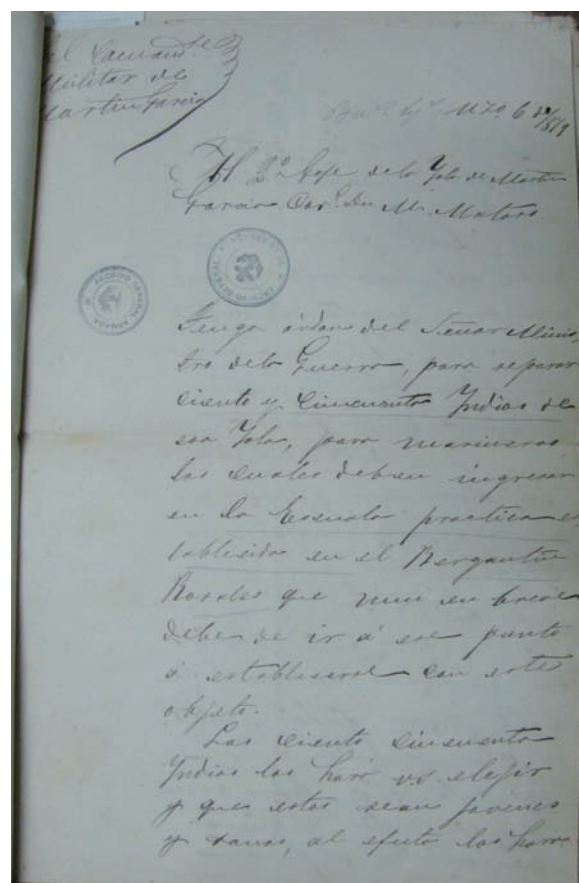 el Comand.te
Militar de
Martin Garcia
Bu.s Ay.s Mzo. 6 de /879
Al 2º Gefe de la Ysla de Martin
Garcia Cor.l Dn M. Matoso
ARCHIVO GENERAL ARMADA
Tengo órden del Señor Minis
tro de la Guerra, para separar
ciento y cincuenta Yndios de
esa Ysla, para marineros
los cuales deben ingresar
en la Escuela practica es
tablecida en el Bergantin
Rosales que muy en breve
debe de ir á ese punto
á establecerse con este
objeto.
Los ciento cincuenta
Yndios los hará vs. elejir
y que estos sean jovenes
y sanos, al efecto los hará